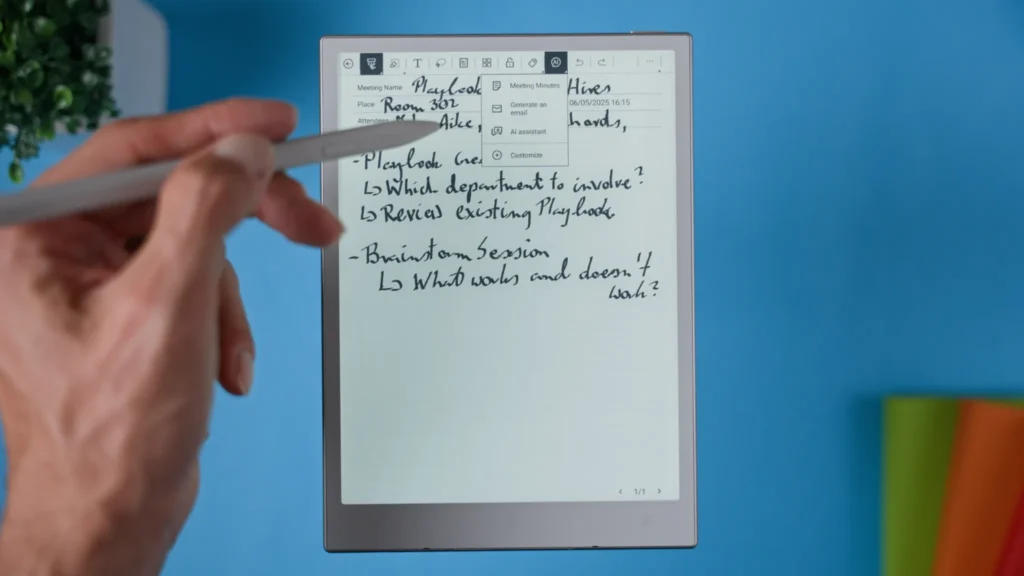 T AI
Meeting Name Playbook Hires
Meeting Minutes
Place Room 302 06/05/2025 16:15
Generate an
email
Aike, hards,
AI assistant
Customize
- Playbook Crea
↳ Which department to involve?
↳ Review existing Playbook
- Brainstorm Session
↳ What works and doesn't
work?
1/1